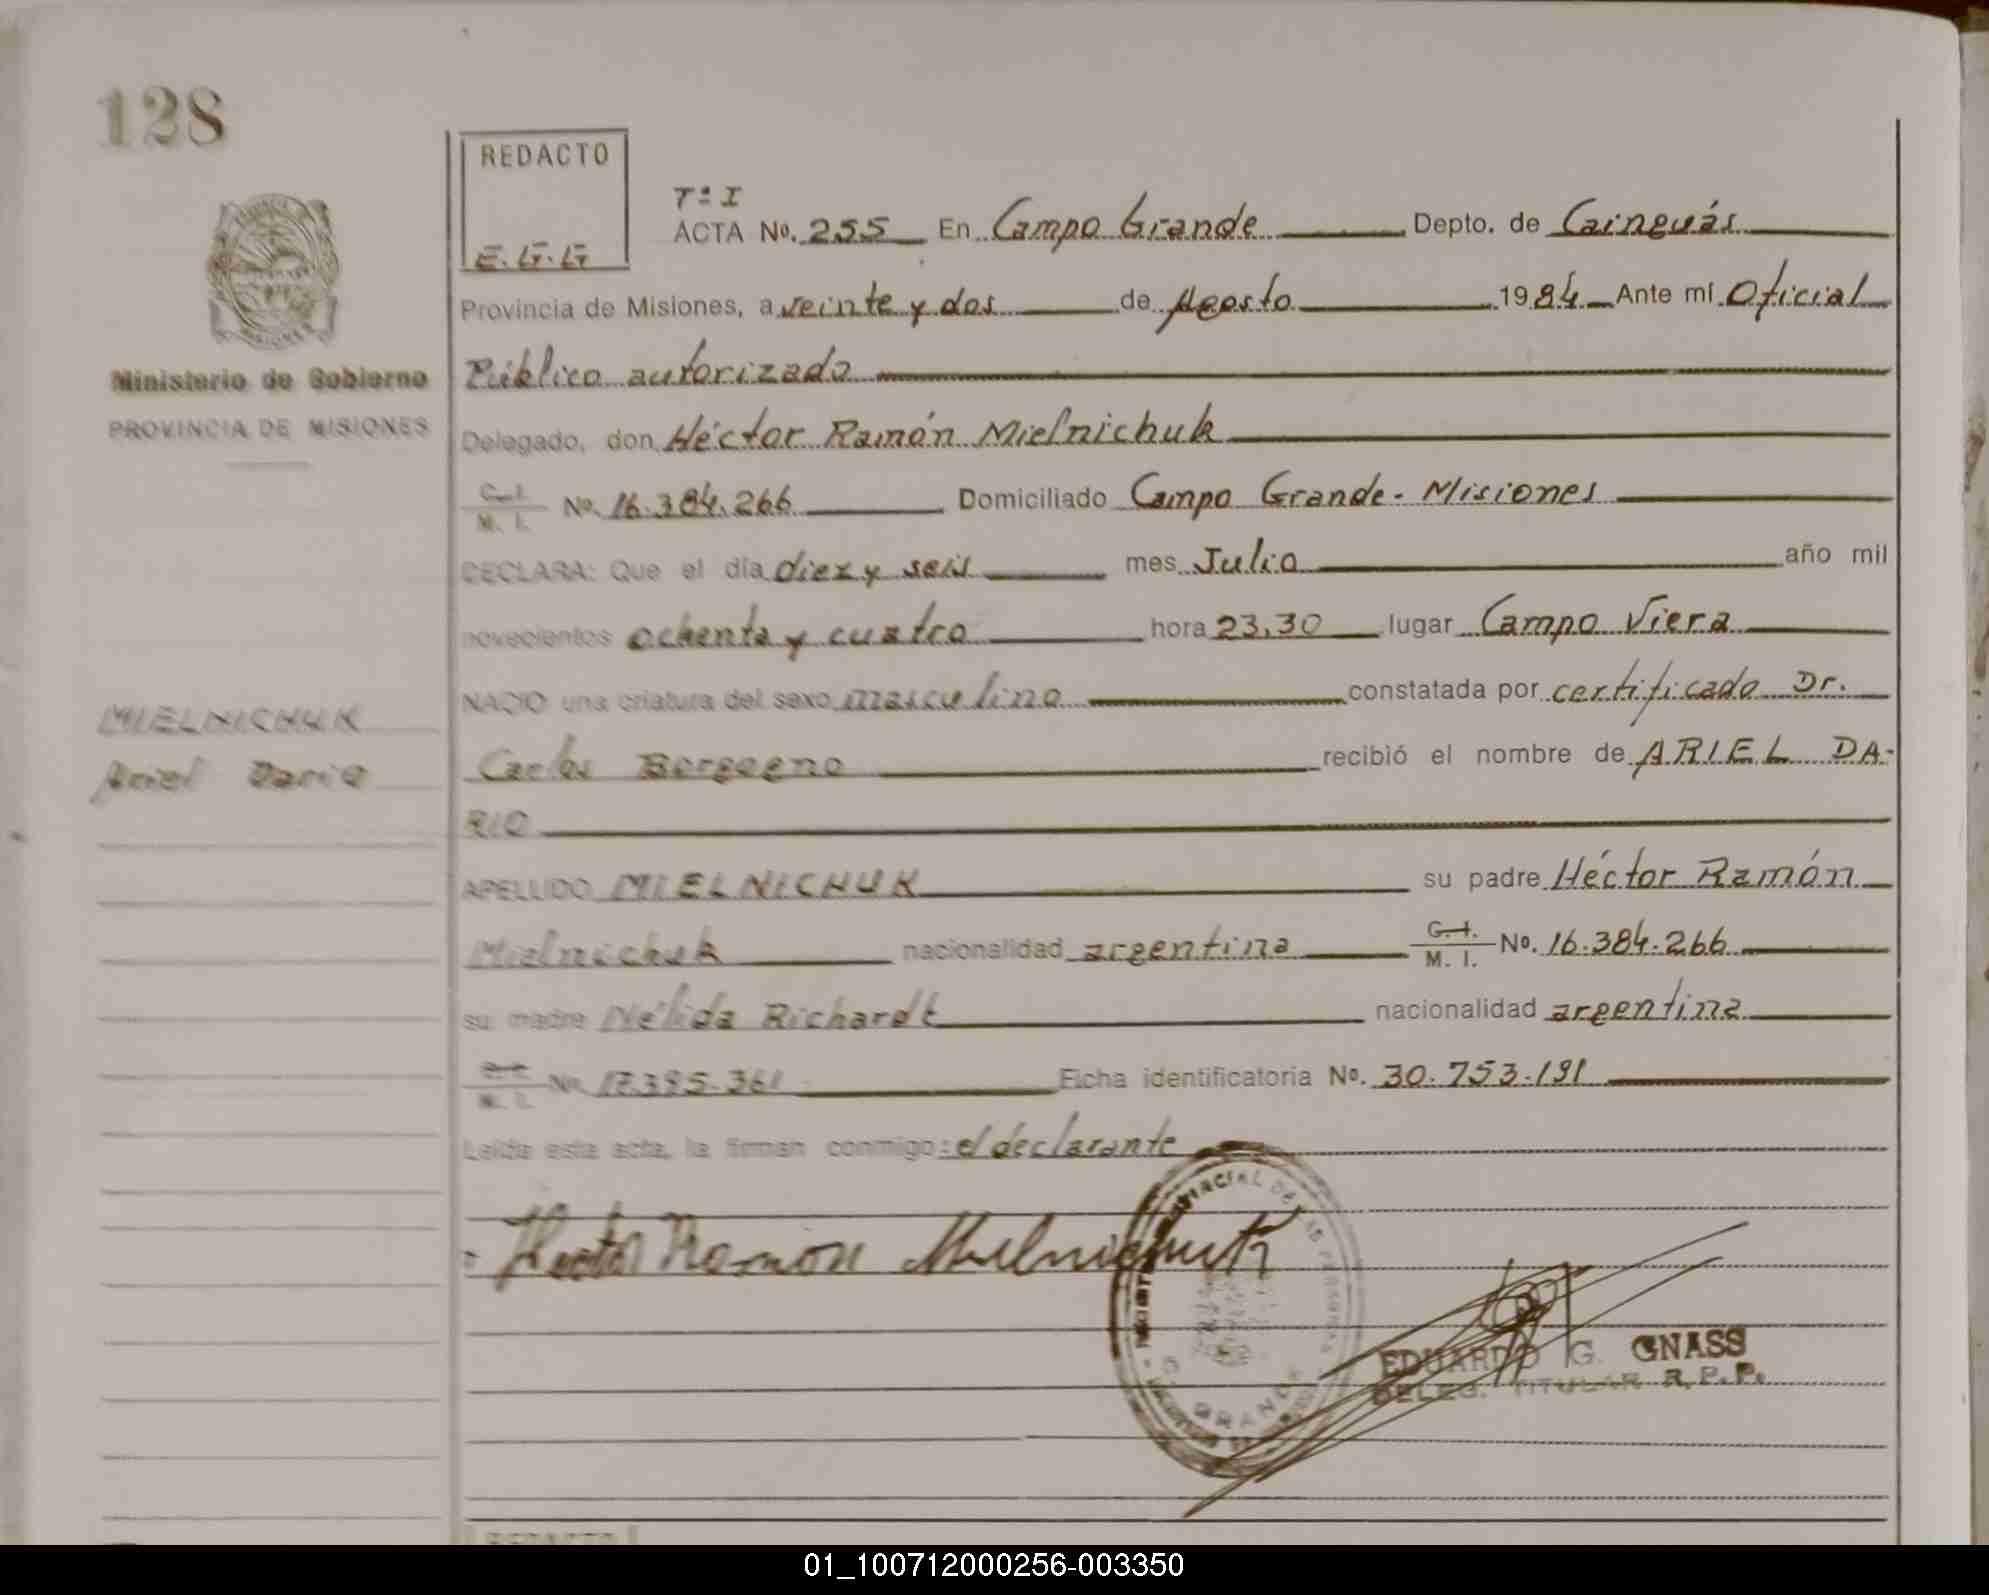 128
REDACTO
E.G.G
Tº I
ACTA Nº. 255 En Campo Grande Depto. de Cainguás
Provincia de Misiones, a veinte y dos de Agosto 1984 Ante mí Oficial
Ministerio de Gobierno
PROVINCIA DE MISIONES
Público autorizado
Delegado, don Héctor Ramón Mielnichuk
C. I.
M. I. Nº. 16.384.266 Domiciliado Campo Grande - Misiones
DECLARA: Que el día diez y seis mes Julio año mil
novecientos ochenta y cuatro hora 23,30 lugar Campo Viera
NACIO una criatura del sexo masculino constatada por certificado Dr.
MIELNICHUK
Ariel Dario
Carlos Borgogno recibió el nombre de ARIEL DA-
RIO
APELLIDO MIELNICHUK su padre Héctor Ramón
Mielnichuk nacionalidad argentina C. I.
M. I. Nº. 16.384.266
su madre Nélida Richardt nacionalidad argentina
M. I. Nº. 17.395.361 Ficha identificatoria Nº. 30.753.191
Leída esta acta, la firman conmigo: el declarante
Hector Ramon Mielnichuk
EDUARDO G. GNASS
DELEG. TITULAR R.P.P.
REDACTO
01_100712000256-003350